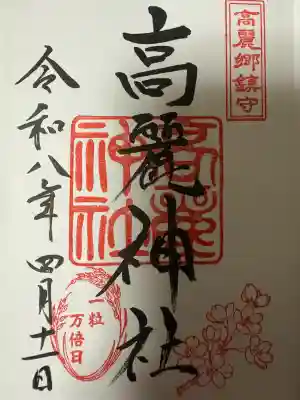 高麗郷鎮守
高麗神社
高麗
神社
令和八年四月十一日
一粒
万倍日